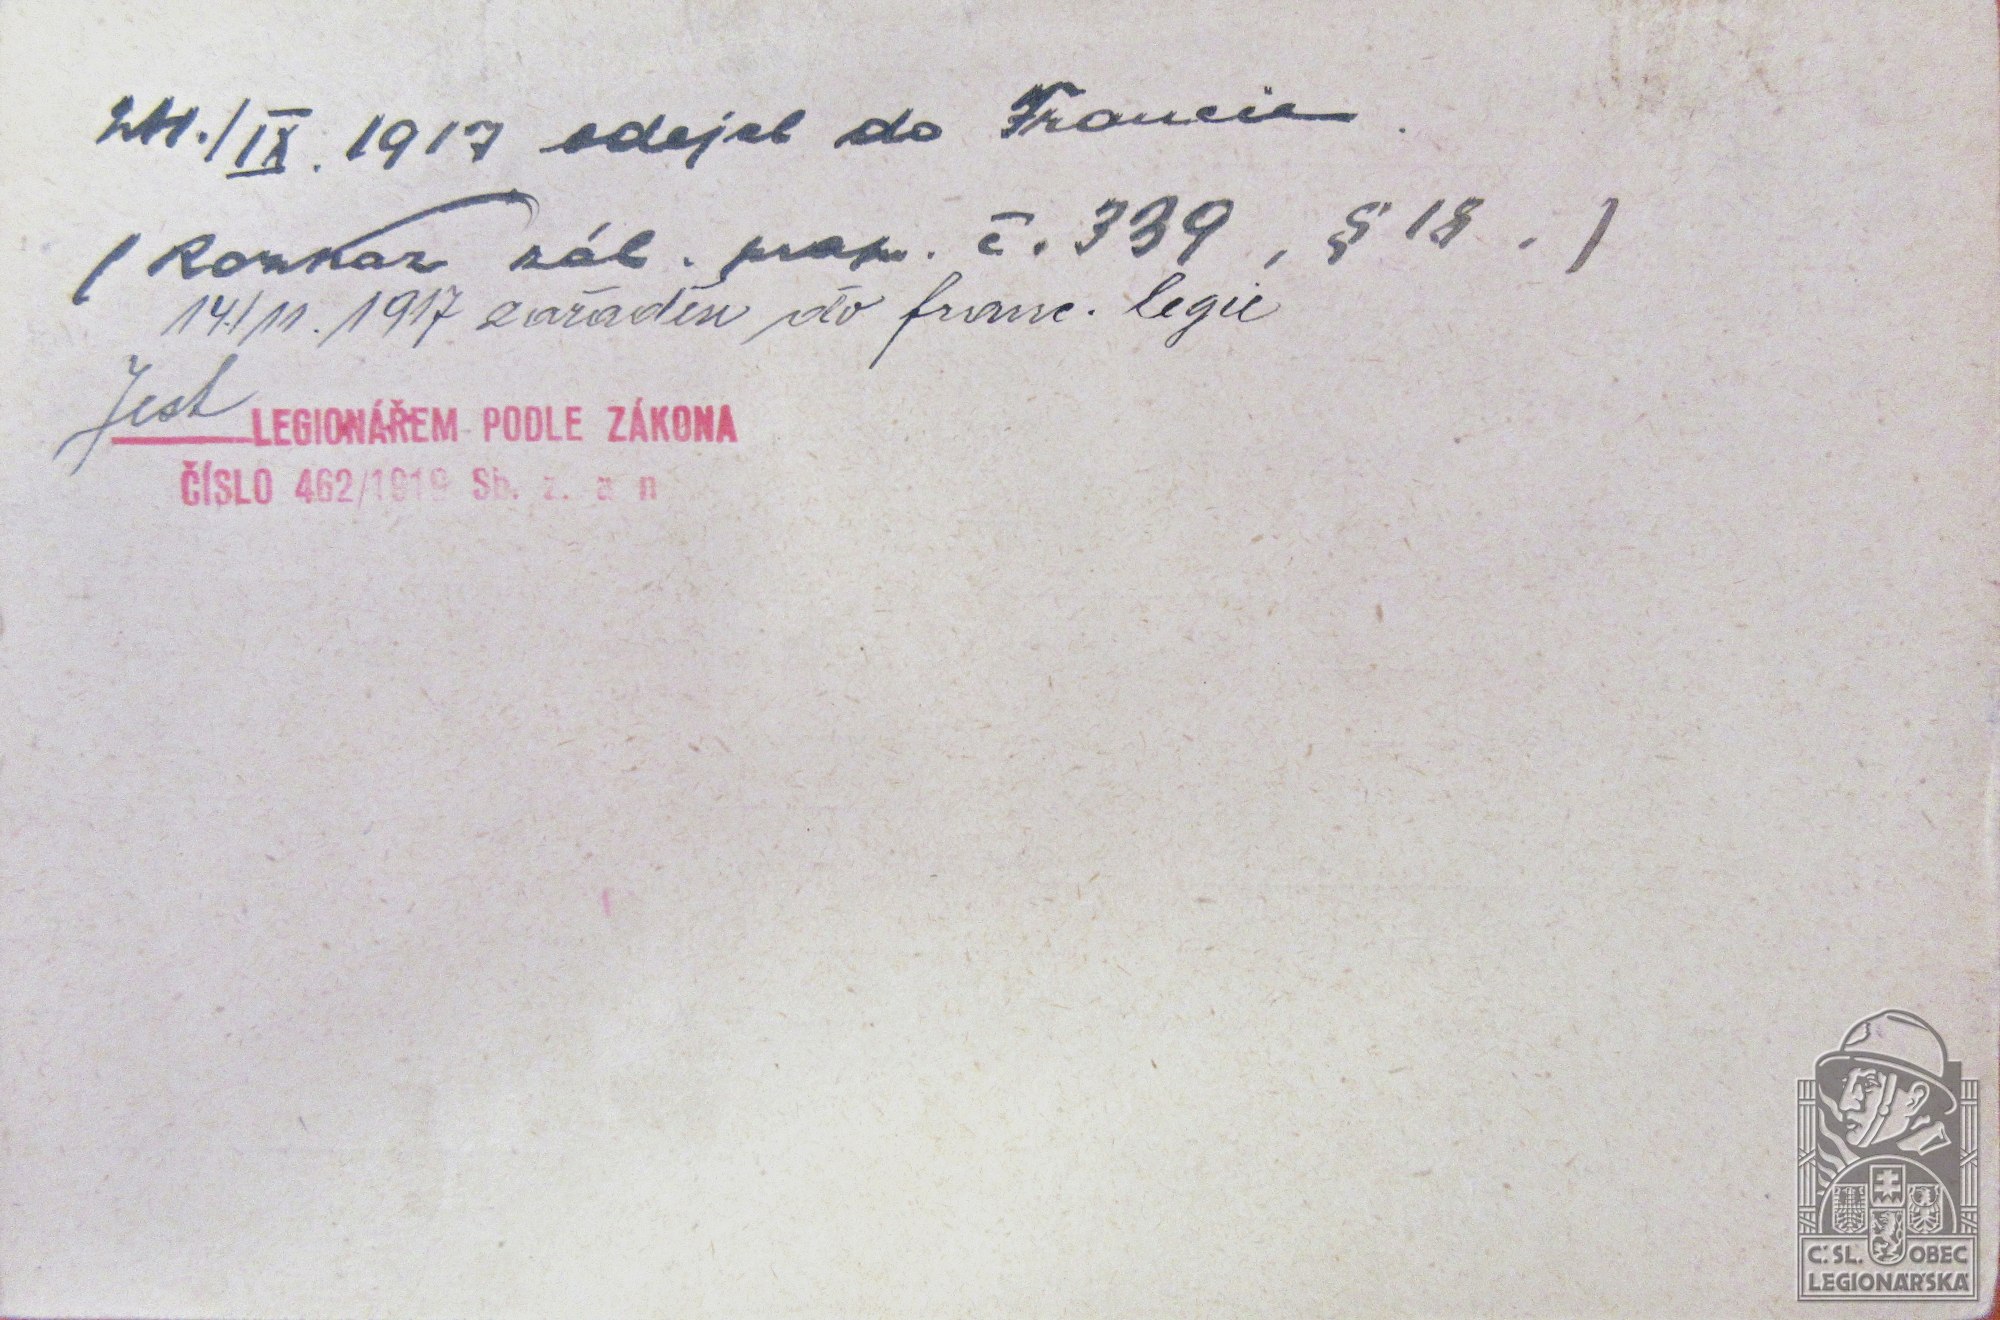 24./IX. 1917 odejel do Francie.
(Rozkaz zál. prap. č. 339, § 18.)
14/11. 1917 zařaděn do franc. legie
Jest LEGIONÁŘEM PODLE ZÁKONA
ČÍSLO 462/1919 Sb. z. a n
Č. SL. OBEC
LEGIONÁŘSKÁ